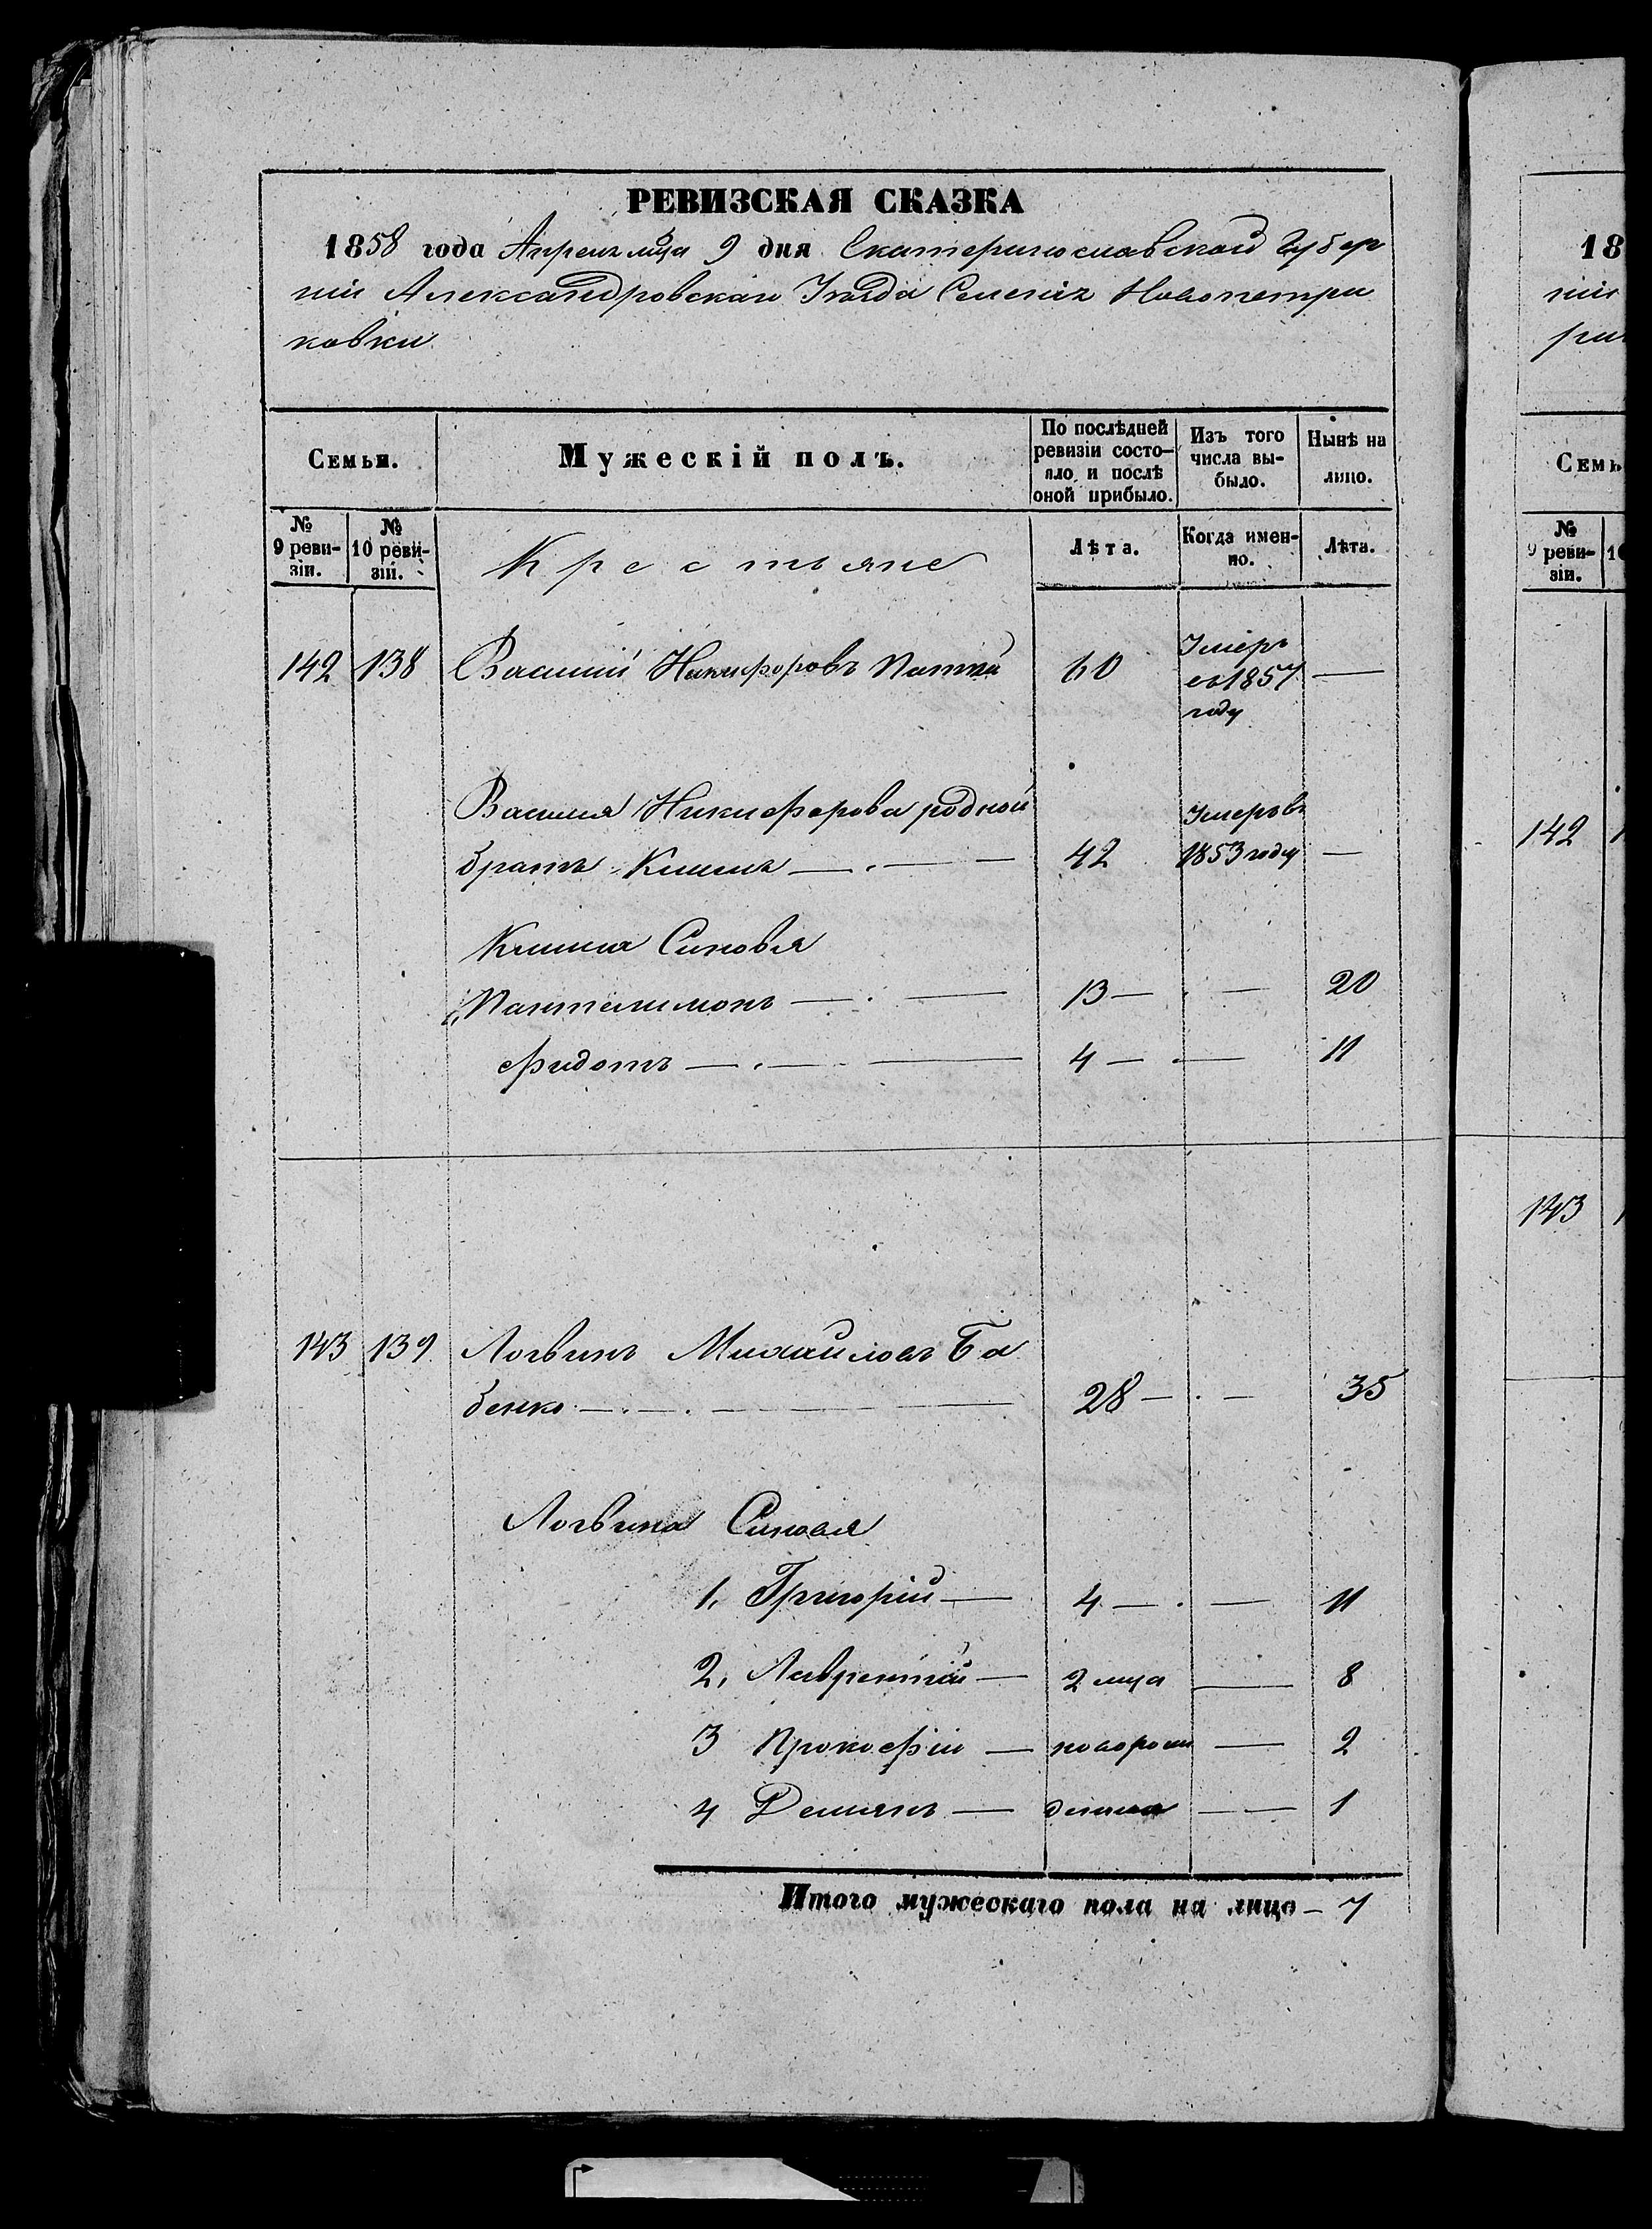 РЕВИЗСКАЯ СКАЗКА
1858 года Апреля мца 9 дня Екатеринославской Губер
нии Александровскаго Уезда Селения Новопетри
ковки
Семьи.
Мужескій полъ.
По послѣдней ревизіи состояло и послѣ оной прибыло.
Изъ того числа выбыло.
Нынѣ на лицо.
№ 9 ревизіи.
№ 10 ревизіи.
Крестьяне
Лѣта.
Когда именно.
Лѣта.
142 138 Василій Никифоровъ 60 Умеръ въ 1857 году —
Василия Никифорова родной
братъ Климъ — 42 Умеръ въ 1853 году —
Клима Синовья
Пантелимонъ — 13 — 20
Фидотъ — 4 — 11
143 139 Логвинъ Михайловъ Ба
бенко — 28 — 35
Логвина Синовя
1, Григорій — 4 — 11
2, Лаврентій — 2 мца — 8
3 Прокофій — новорож — 2
4 Демянъ — дении — 1
Итого мужескаго пола на лицо — 7
18
нии
ри
Семь
№ 9 ревизіи.
1
142
143